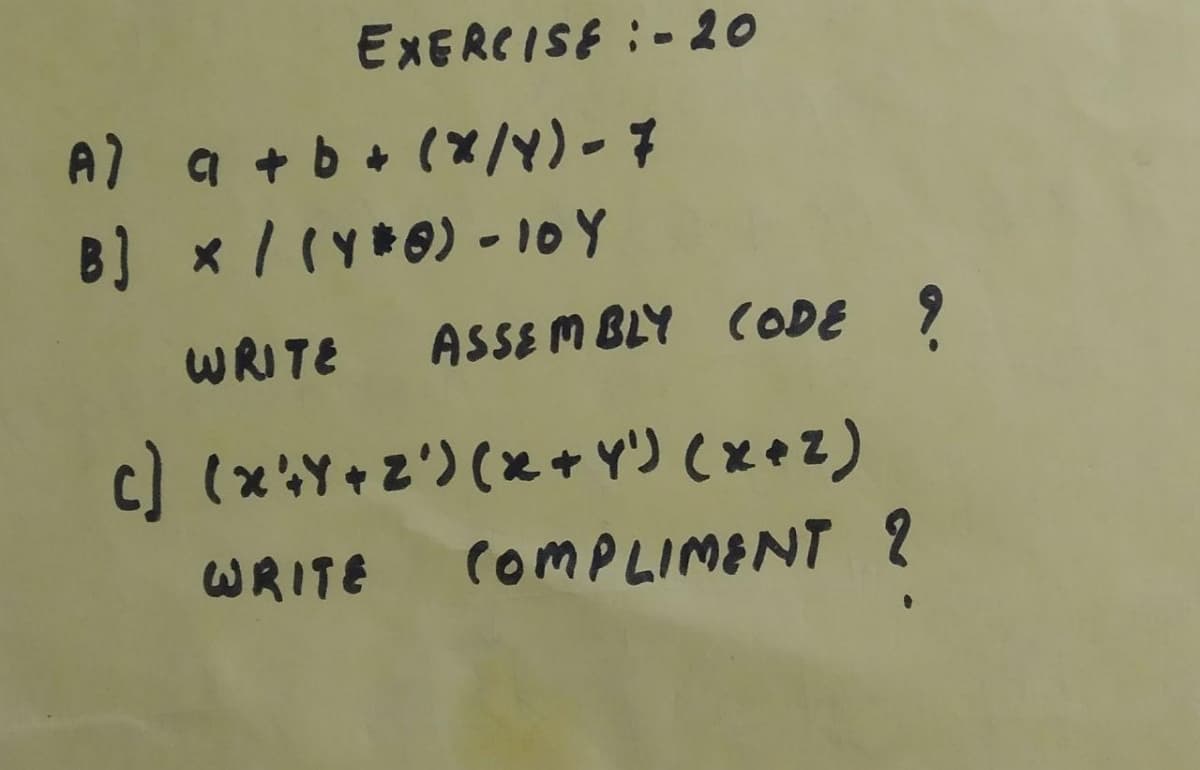 EXERCISE :- 20
A] a + b + (x/y) - 7
B] x / (y*θ) - 10Y
WRITE ASSEMBLY CODE ?
C] (x'+Y+Z')(x+Y')(x+Z)
WRITE COMPLIMENT ?